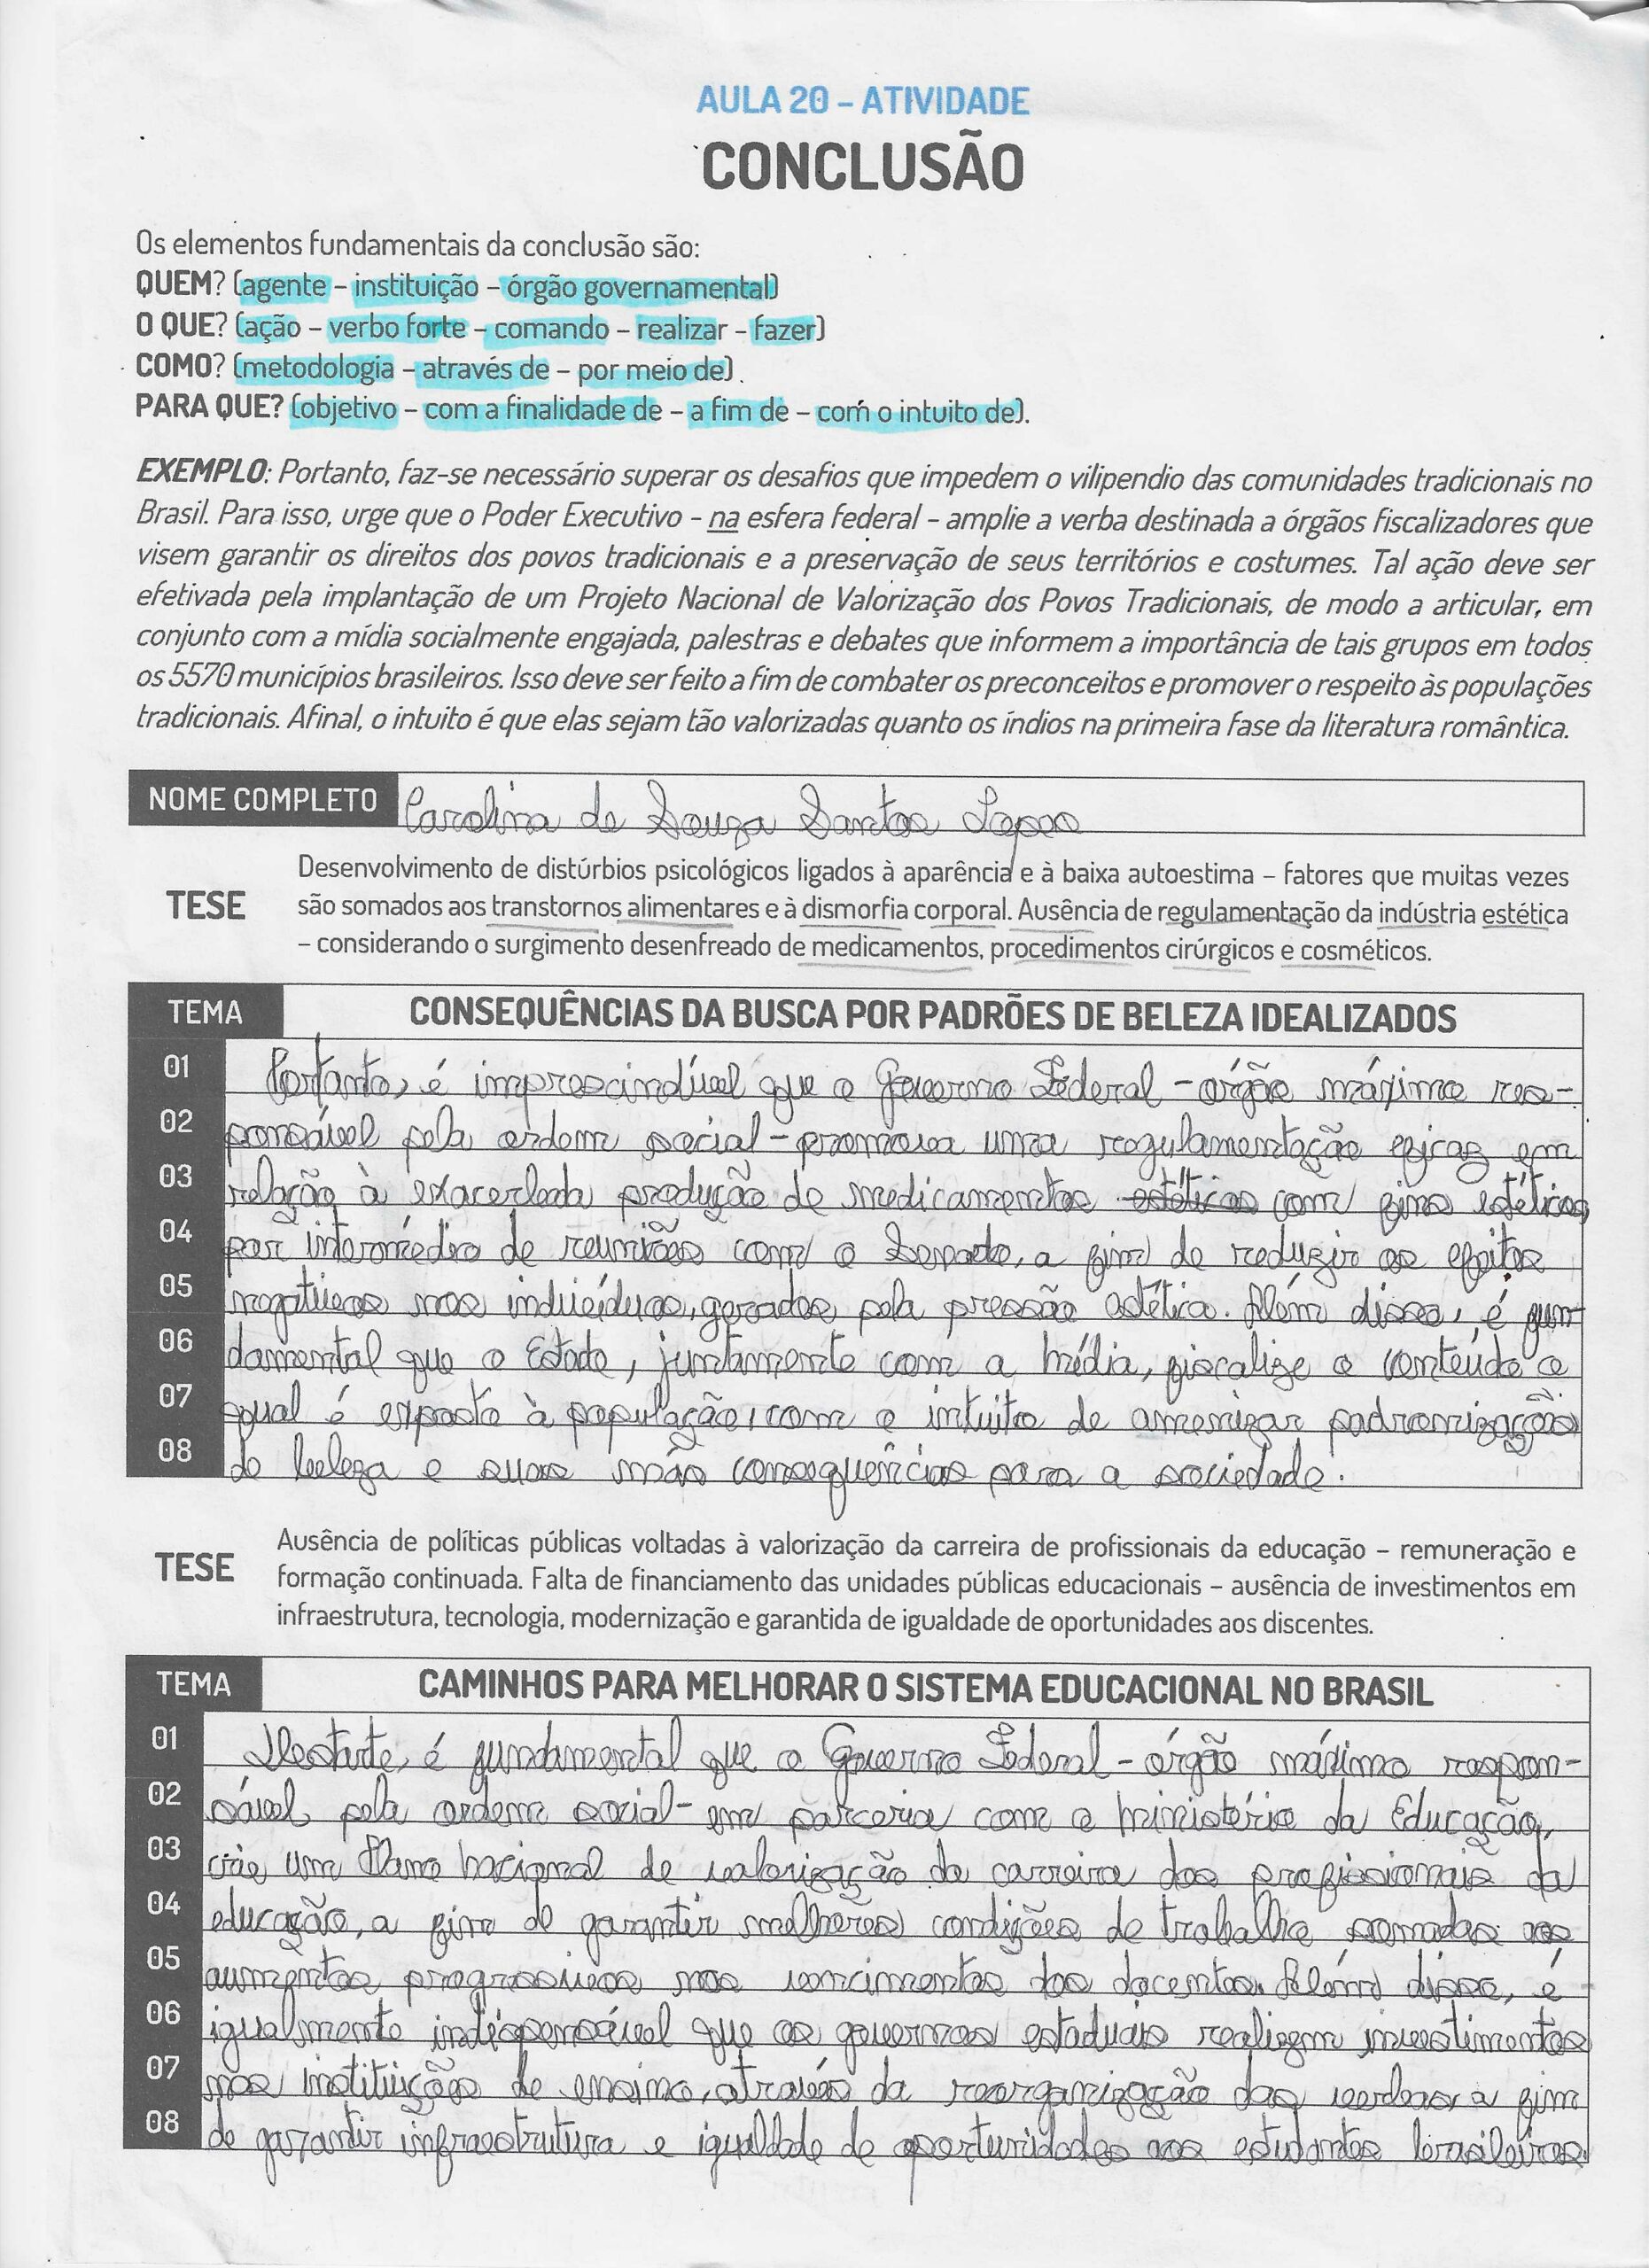 AULA 20 – ATIVIDADE
CONCLUSÃO
Os elementos fundamentais da conclusão são:
QUEM? (agente – instituição – órgão governamental)
O QUE? (ação – verbo forte – comando – realizar – fazer)
COMO? (metodologia – através de – por meio de).
PARA QUE? (objetivo – com a finalidade de – a fim de – com o intuito de).
EXEMPLO: Portanto, faz-se necessário superar os desafios que impedem o vilipendio das comunidades tradicionais no
Brasil. Para isso, urge que o Poder Executivo – na esfera federal – amplie a verba destinada a órgãos fiscalizadores que
visem garantir os direitos dos povos tradicionais e a preservação de seus territórios e costumes. Tal ação deve ser
efetivada pela implantação de um Projeto Nacional de Valorização dos Povos Tradicionais, de modo a articular, em
conjunto com a mídia socialmente engajada, palestras e debates que informem a importância de tais grupos em todos
os 5570 municípios brasileiros. Isso deve ser feito a fim de combater os preconceitos e promover o respeito às populações
tradicionais. Afinal, o intuito é que elas sejam tão valorizadas quanto os índios na primeira fase da literatura romântica.
NOME COMPLETO Carolina de Souza Santos Lopes
Desenvolvimento de distúrbios psicológicos ligados à aparência e à baixa autoestima – fatores que muitas vezes
TESE são somados aos transtornos alimentares e à dismorfia corporal. Ausência de regulamentação da indústria estética
– considerando o surgimento desenfreado de medicamentos, procedimentos cirúrgicos e cosméticos.
TEMA CONSEQUÊNCIAS DA BUSCA POR PADRÕES DE BELEZA IDEALIZADOS
01 Portanto, é imprescindível que o Governo Federal – órgão máximo res-
02 ponsável pela ordem social – promova uma regulamentação eficaz em
03 relação à exacerbada produção de medicamentos estéticos com fins estéticos,
04 por intermédio de reuniões com o Senado, a fim de reduzir os efeitos
05 negativos nos indivíduos, gerados pela pressão estética. Além disso, é fun-
06 damental que o Estado, juntamente com a mídia, fiscalize o conteúdo o
07 qual é exposto à população, com o intuito de amenizar padronização
08 de beleza e suas más consequências para a sociedade.
Ausência de políticas públicas voltadas à valorização da carreira de profissionais da educação – remuneração e
TESE formação continuada. Falta de financiamento das unidades públicas educacionais – ausência de investimentos em
infraestrutura, tecnologia, modernização e garantida de igualdade de oportunidades aos discentes.
TEMA CAMINHOS PARA MELHORAR O SISTEMA EDUCACIONAL NO BRASIL
01 Destarte, é fundamental que o Governo Federal – órgão máximo respon-
02 sável pela ordem social – em parceria com o Ministério da Educação,
03 crie um Plano Nacional de valorização da carreira dos profissionais da
04 educação, a fim de garantir melhores condições de trabalho somadas aos
05 aumentos progressivos nos vencimentos dos docentes. Além disso, é
06 igualmente indispensável que os governos estaduais realizem investimentos
07 nas instituições de ensino, através da reorganização das verbas, a fim
08 de garantir infraestrutura e igualdade de oportunidades aos estudantes brasileiros.